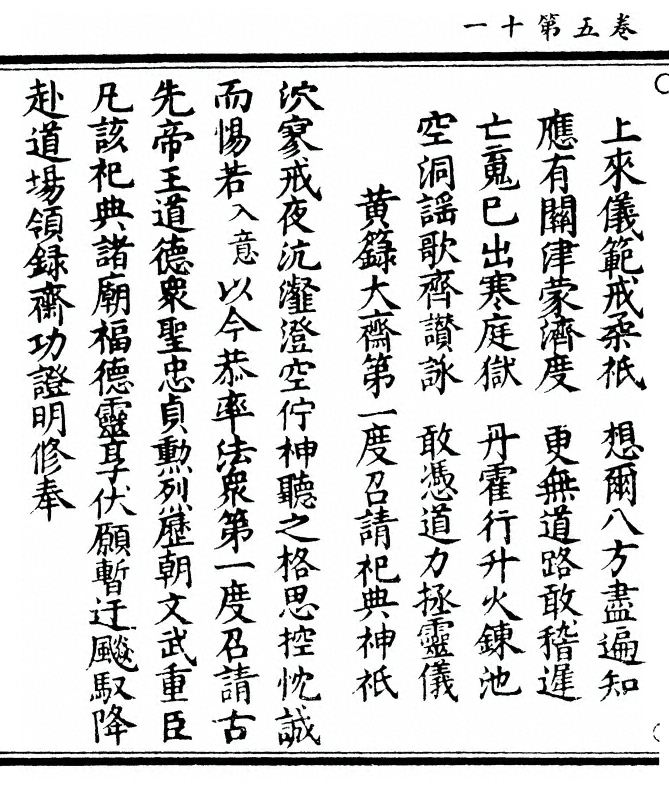 卷五第十一
上來儀範戒柔祇　想爾八方盡遍知
應有關津蒙濟度　更無道路敢稽遲
亡䰟已出寒庭獄　丹霍行升火鍊池
空洞謡歌齊讃詠　敢憑道力拯靈儀
黄籙大齋第一度召請祀典神祇
泬寥戒夜沆瀣澄空佇神聽之格思控忱誠
而惕若入意以今恭率法衆第一度召請古
先帝王道德衆聖忠貞勲烈歷朝文武重臣
凡該祀典諸廟福德靈享伏願暫迂飈馭降
赴道場領録齋功證明修奉